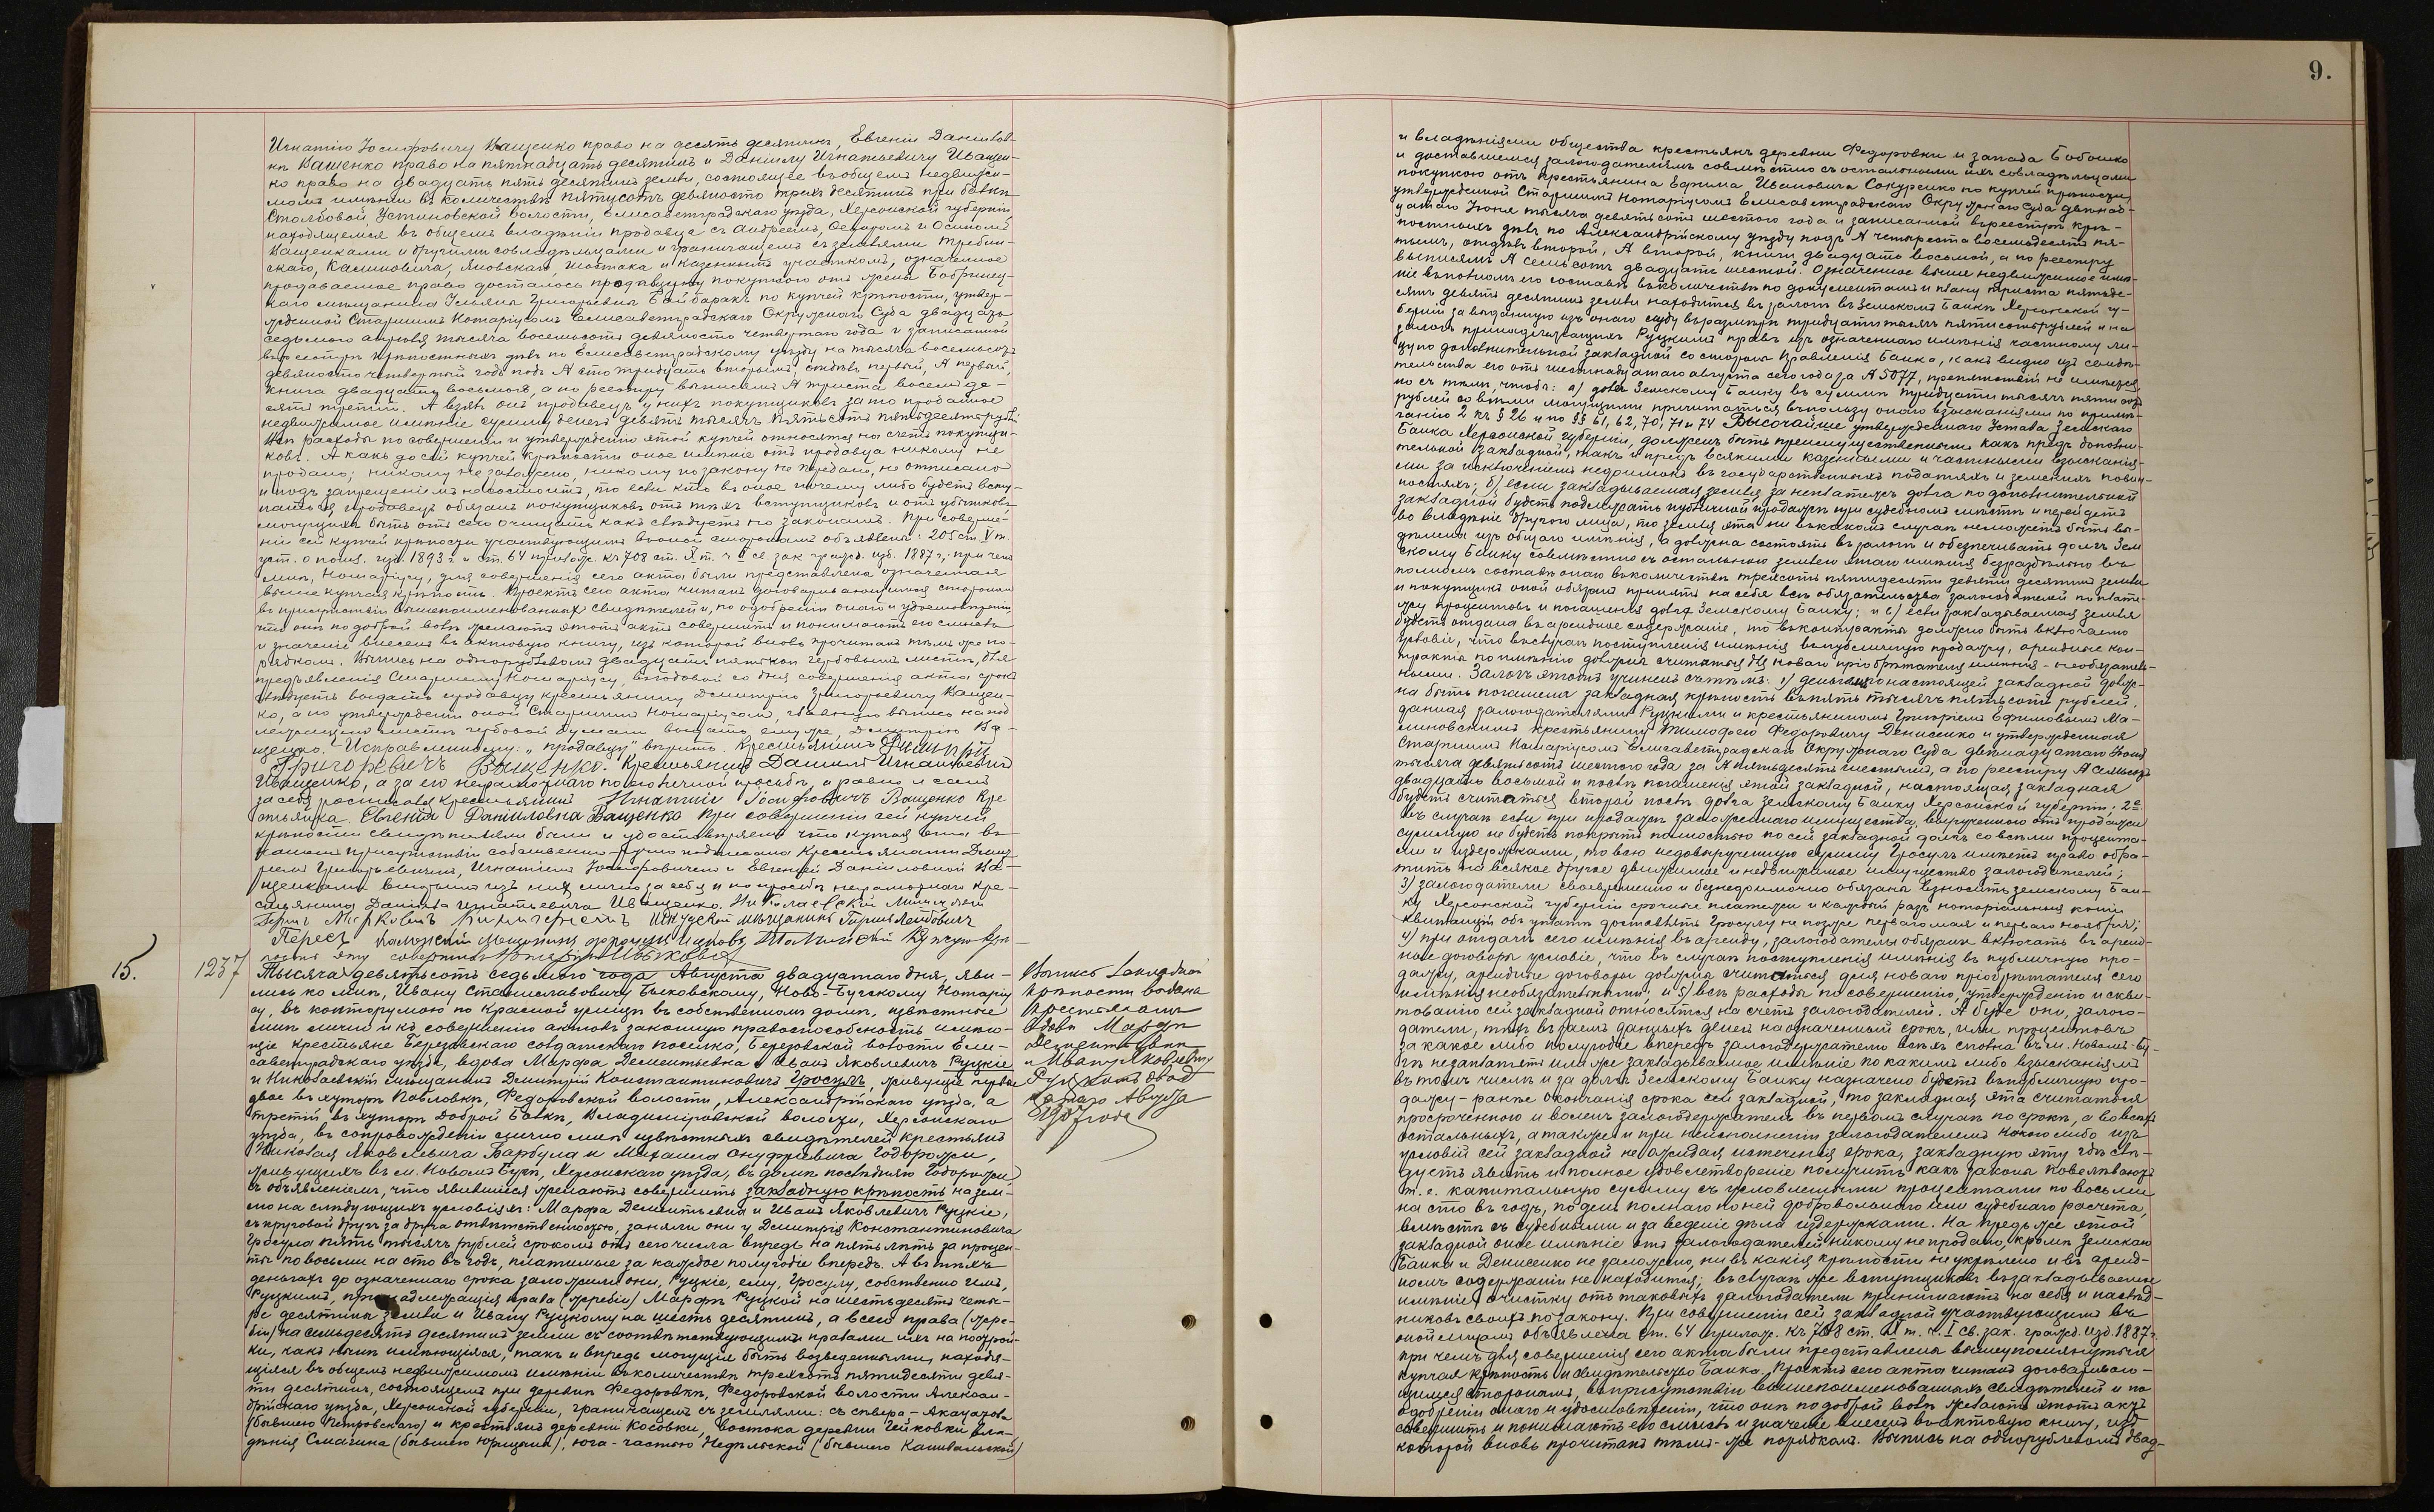 Игнатію Іосифовичу Ващенко право на десять десятинъ, Евгеніи Даніилов-
нѣ Ващенко право на пятнадцать десятинъ и Даніилу Игнатьевичу Иващен-
ко право на двадцать пять десятинъ земли, состоящее въ общемъ недвижи-
момъ имѣніи въ количествѣ пятисотъ девяносто трехъ десятинъ при балкѣ
Столбовой, Устиновской волости, Елисаветградскаго уѣзда, Херсонской губерніи,
находящемся въ общемъ владѣніи продавца съ Андреемъ, Федоромъ и Осипомъ
Ващенками и другими совладѣльцами и граничащемъ съ землями Требин-
скаго, Калиновича, Яновскаго, Шостака и казеннымъ участкомъ, означенное
продаваемое право досталось продавцу покупкою отъ жены Бобринец-
каго мѣщанина Григорьевны Байбаракъ по купчей крѣпости, утвер-
жденной Старшимъ Нотаріусомъ Елисаветградскаго Окружнаго Суда двадцать
седьмого апрѣля тысяча восемьсотъ девяносто четвертаго года и записанной
въ реестрѣ крѣпостныхъ дѣлъ по Елисаветградскому уѣзду на тысяча восемьсотъ
девяносто четвертый годъ подъ № сто тридцать вторымъ, отдѣлъ первый, № первый,
книга двадцать восьмая, а по реестру выписей № триста восемьде-
сятъ третій. А взялъ онъ продавецъ у нихъ покупщиковъ за то проданное
недвижимое имѣніе сумму денегъ девять тысячъ пятьсотъ пятьдесятъ руб.
Всѣ расходы по совершенію и утвержденію этой купчей относятся на счетъ покупщи-
ковъ. А какъ до сей купчей крѣпости оное имѣніе отъ продавца никому не
продано, никому не заложено, никому по закону не предано, не отписано
и подъ запрещеніемъ не состоитъ, то если кто въ оное почему либо будетъ всту-
паться, продавецъ обязанъ покупщиковъ отъ тѣхъ вступщиковъ и отъ убытковъ
могущихъ быть отъ сего очищать какъ слѣдуетъ по законамъ. При соверше-
ніи сей купчей крѣпости участвующимъ въ оной сторонамъ объявлены: 205 ст. V т.
уст. о пошл. изд. 1893 г. и ст. 64 прилож. къ 708 ст. X т. ч. I св. зак. гражд. изд. 1887 г., при чемъ
мнѣ, Нотаріусу, для совершенія сего акта были представлена означенная
выше купчая крѣпость. Проектъ сего акта читанъ договаривающимся сторонамъ
въ присутствіи вышепоименованныхъ свидѣтелей и, по одобреніи онаго и удостовѣреніи,
что онѣ по доброй волѣ желаютъ этотъ актъ совершить и понимаютъ его смыслъ
и значеніе внесенъ въ актовую книгу, изъ которой вновь прочитанъ тѣмъ же по-
рядкомъ. Выпись на однорублевомъ двадцати пяти коп. гербовомъ листѣ, для
предъявленія Старшему Нотаріусу, въ годовой со дня совершенія акта срокъ
слѣдуетъ выдать продавцу крестьянину Дмитрію Григорьевичу Ващен-
ко, а по утвержденіи оной Старшимъ Нотаріусомъ, главную выпись на под-
лежащемъ листѣ гербовой бумаги выдать ему же, Дмитрію Ва-
щенко. Исправленному: „продавцу“ вѣрить. Крестьянинъ Дмитрій
Григоревичъ Ващенко. Крестьянинъ Даніилъ Игнатьевичъ
Иващенко, а за его неграмотнаго по его личной просьбѣ, а равно и самъ
за себя росписался крестьянинъ Игнатій Іосифовичъ Ващенко Кре
стьянка Евгенія Даніиловна Ващенко При совершеніи сей купчей
крѣпости свидѣтелями были и удостовѣряемъ что купчая эта въ
нашемъ присутствіи собственно-ручно подписана Крестьянами Дмит-
ріемъ Григорьевичемъ, Игнатіемъ Іосифовичемъ и Евгеніей Даниловной Ва-
щенками вторымъ изъ нихъ лично за себя и по просьбѣ неграмотнаго кре-
стьянина Даніила Игнатьевича Иващенко. Николаевскій Мѣщанинъ
мѣщанинъ Гершъ Лейбовичъ
Пересъ
15. 1237 Тысяча девятьсотъ седьмого года Августа двадцатаго дня, яви-
лись ко мнѣ, Ивану Станиславовичу Быковскому, Ново-Бугскому Нотаріу
су, въ контору мою по Красной улицѣ въ собственномъ домѣ, извѣстные
мнѣ лично и къ совершенію актовъ законную правоспособность имѣю-
щіе крестьяне Березовскаго солдатскаго поселка, Березовской волости Ели-
саветградскаго уѣзда, вдова Марфа Дементьевна и Иванъ Яковлевичъ Руцкіе
и Николаевскій мѣщанинъ Дмитрій Константиновичъ Гросулъ, живущіе первые
двое въ хуторѣ Павловкѣ, Федоровской волости, Александрійскаго уѣзда, а
третій въ хуторѣ Доброй Балкѣ, Владиміровской волости, Херсонскаго
уѣзда, въ сопровожденіи лично мнѣ извѣстныхъ свидѣтелей крестьянъ
Николая Яковлевича Барбула и Михаила Онуфріевича Годорожи,
живущихъ въ м. Новомъ Бугѣ, Херсонскаго уѣзда, въ домѣ послѣдняго Годорожи,
съ объявленіемъ, что явившіеся желаютъ совершить закладную крѣпость на зем-
лю на слѣдующихъ условіяхъ: Марфа Дементьевна и Иванъ Яковлевичъ Руцкіе,
съ круговой другъ за друга отвѣтственностью, заняли они у Дмитрія Константиновича
Гросула пять тысячъ рублей срокомъ отъ сего числа впредь на пять лѣтъ за процен-
ты по восьми на сто въ годъ, платимые за каждое полугодіе впередъ. А въ тѣхъ
деньгахъ до означеннаго срока заложили они, Руцкіе, ему, Гросулу, собственно имъ,
Руцкимъ, принадлежащія права (жребіи) Марфѣ Руцкой на шестьдесятъ четы-
ре десятины земли и Ивану Руцкому на шесть десятинъ, а всего права (жре-
біи) на семьдесятъ десятинъ земли съ соотвѣтствующими правами ихъ на построй-
ки, какъ нынѣ имѣющіяся, такъ и впредь могущія быть возведенными, находя-
щіяся въ общемъ недвижимомъ имѣніи въ количествѣ трехсотъ пятидесяти девя-
ти десятинъ, состоящемъ при деревнѣ Федоровкѣ, Федоровской волости Алексан-
дрійскаго уѣзда, Херсонской губерніи, граничащемъ съ землями: съ сѣвера-Акацатова
(бывшею Петровскаго) и крестьянъ деревни Косовки, востока деревни Гейковки вла-
дѣнія Смагина (бывшею Юрицына), юга-частью Недѣльской (бывшею Кашвальской)
Выпись закладной
крѣпости выдана
крестьянамъ
вдовѣ Марфѣ
Дементьевнѣ
и Ивану Яковлевичу
Руцкимъ двад
цатаго Августа
1907 года
9.
и владѣніями общества крестьянъ деревни Федоровки и запада Бобошко
и доставшемся залогодателямъ совмѣстно съ остальными ихъ совладѣльцами
покупкою отъ крестьянина Ефима Ивановича Сокуренко по купчей крѣпости,
утвержденной Старшимъ Нотаріусомъ Елисаветградскаго Окружнаго Суда двѣнад-
цатаго Іюня тысяча девятьсотъ шестого года и записанной въ реестрѣ крѣ-
постныхъ дѣлъ по Александрійскому уѣзду подъ № четыреста восемьдесятъ пя-
тымъ, отдѣлъ второй, № второй, книги двадцать восьмой, а по реестру
выписямъ № семьсотъ двадцать шестой. Означенное выше недвижимое имѣ-
ніе въ полномъ его составѣ въ количествѣ по документамъ и плану триста пятьде-
сятъ девять десятинъ земли находится въ залогѣ въ Земскомъ Банкѣ Херсонской гу-
берніи за выданную изъ онаго ссуду въ размѣрѣ тридцати тысячъ пятисотъ рублей и на
залогъ принадлежащихъ Руцкимъ правъ изъ означеннаго имѣнія частному ли-
цу по дополнительной закладной со стороны Правленія Банка, какъ видно изъ свидѣ-
тельства его отъ шестнадцатаго августа сего года за № 5077, препятствій не имѣется
но съ тѣмъ, чтобы: а) долгъ Земскому Банку въ суммѣ тридцати тысячъ пятисотъ
рублей со всѣми могущими причитаться въ пользу онаго взысканіями по примѣ-
чанію 2 къ § 26 и по §§ 61, 62, 70, 71 и 74 Высочайше утвержденнаго Устава Земскаго
Банка Херсонской губерніи, долженъ быть преимущественнымъ какъ предъ дополни-
тельной закладной, такъ и предъ всякими казенными и частными взысканія-
ми за исключеніемъ недоимокъ въ государственныхъ податяхъ и земскихъ повин-
ностяхъ; б) если закладываемая земля за неплатежъ долга по дополнительной
закладной будетъ подлежать публичной продажѣ при судебномъ мѣстѣ и перейдетъ
во владѣніе другого лица, то земля эта ни въ какомъ случаѣ не можетъ быть вы-
дѣлена изъ общаго имѣнія, а должна состоять въ залогѣ и обезпечивать долгъ Зем
скому Банку совмѣстно съ остальною землею этого имѣнія безраздѣльно въ
полномъ составѣ онаго въ количествѣ трехсотъ пятидесяти девяти десятинъ земли
и покупщикъ оной обязанъ принять на себя всѣ обязательства залогодателей по плате-
жу процентовъ и погашенія долга Земскому Банку; и в) если закладываемая земля
будетъ отдана въ арендное содержаніе, то въ контрактъ должно быть включено
условіе, что въ случаѣ поступленія имѣнія въ публичную продажу, арендные кон-
тракты по имѣнію должны считаться для новаго пріобрѣтателя имѣнія-необязатель-
ными. Залогъ этотъ учиненъ съ тѣмъ: 1) деньгами по настоящей закладной долж-
на быть погашена закладная крѣпость въ пять тысячъ пятьсотъ рублей,
данная залогодателями Руцкими и крестьяниномъ Григоріемъ Ефимовымъ Ма-
линовскимъ крестьянину Тимофею Федоровичу Денисенко и утвержденная
Старшимъ Нотаріусомъ Елисаветградскаго Окружнаго Суда двѣнадцатаго Іюня
тысяча девятьсотъ шестого года за № пятьдесятъ шестымъ, а по реестру № семьсотъ
двадцать восьмой и послѣ погашенія этой закладной, настоящая закладная
будетъ считаться второй послѣ долга Земскому Банку Херсонской губерніи; 2е
въ случаѣ если при продажѣ заложеннаго имущества, вырученною отъ продажи
суммою не будетъ покрытъ полностью по сей закладной долгъ со всѣми процента-
ми и издержками, то всю недовырученную сумму Гросулъ имѣетъ право обра-
тить на всякое другое движимое и недвижимое имущество залогодателей;
3) залогодатели своевременно и бездоимочно обязаны взносить Земскому Бан-
ку Херсонской губерніи срочные платежи и каждый разъ нотаріальныя копіи
квитанцій объ уплатѣ доставлять Гросулу не позже перваго мая и перваго ноября;
4) при отдачѣ сего имѣнія въ аренду, залогодатели обязаны включать въ аренд-
ные договоры условіе, что въ случаѣ поступленія имѣнія въ публичную про-
дажу, арендные договоры должны считаться для новаго пріобрѣтателя сего
имѣнія необязательными; и 5) всѣ расходы по совершенію, утвержденію и скви-
тованію сей закладной относятся на счетъ залогодателей. А буде они, залого-
датели, тѣхъ взаемъ данныхъ денегъ на означенный срокъ, или процентовъ
за какое либо полугодіе впередъ залогодержателю всѣхъ сполна въ м. Новомъ-Бу-
гѣ не заплатятъ или же закладываемое имѣніе по какимъ либо взысканіямъ
въ томъ числѣ и за долгъ Земскому Банку назначено будетъ въ публичную про-
дажу-ранѣе окончанія срока сей закладной, то закладная эта считается
просроченною и воленъ залогодержатель въ первомъ случаѣ по срокѣ, а во всѣхъ
остальныхъ, а также и при неисполненіи залогодателями какого либо изъ
условій сей закладной не ожидая истеченія срока, закладную эту гдѣ слѣ-
дуетъ явить и полное удовлетвореніе получить какъ законы повелѣваютъ
т. е. капитальную сумму съ условленными процентами по восьми
на сто въ годъ, по день полнаго по ней добровольнаго или судебнаго расчета,
вмѣстѣ съ судебными и за веденіе дѣла издержками. На предь же этой
закладной оное имѣніе отъ залогодателей никому не продано, кромѣ Земскаго
Банка и Денисенко не заложено, ни въ какія крѣпости не укрѣплено и въ аренд-
номъ содержаніи не находится; въ случаѣ же вступщиковъ въ закладываемое
имѣніе, очистку отъ таковыхъ залогодатели принимаютъ на себя и наслѣд-
никовъ своихъ по закону. При совершеніи сей закладной участвующимъ въ
оной лицамъ объявлена ст. 64 прилож. къ 708 ст. X т. ч. I св. зак. гражд. изд. 1887 г.
при чемъ для совершенія сего акта были представлены вышеупомянутыя
купчая крѣпость и свидѣтельство Банка. Проектъ сего акта читанъ договариваю-
щимся сторонамъ, въ присутствіи вышепоименованныхъ свидѣтелей и по
одобреніи онаго и удостовѣреніи, что онѣ по доброй волѣ желаютъ этотъ актъ
совершить и понимаютъ его смыслъ и значеніе внесенъ въ актовую книгу, изъ
которой вновь прочитанъ тѣмъ-же порядкомъ. Выпись на однорублевомъ двад-